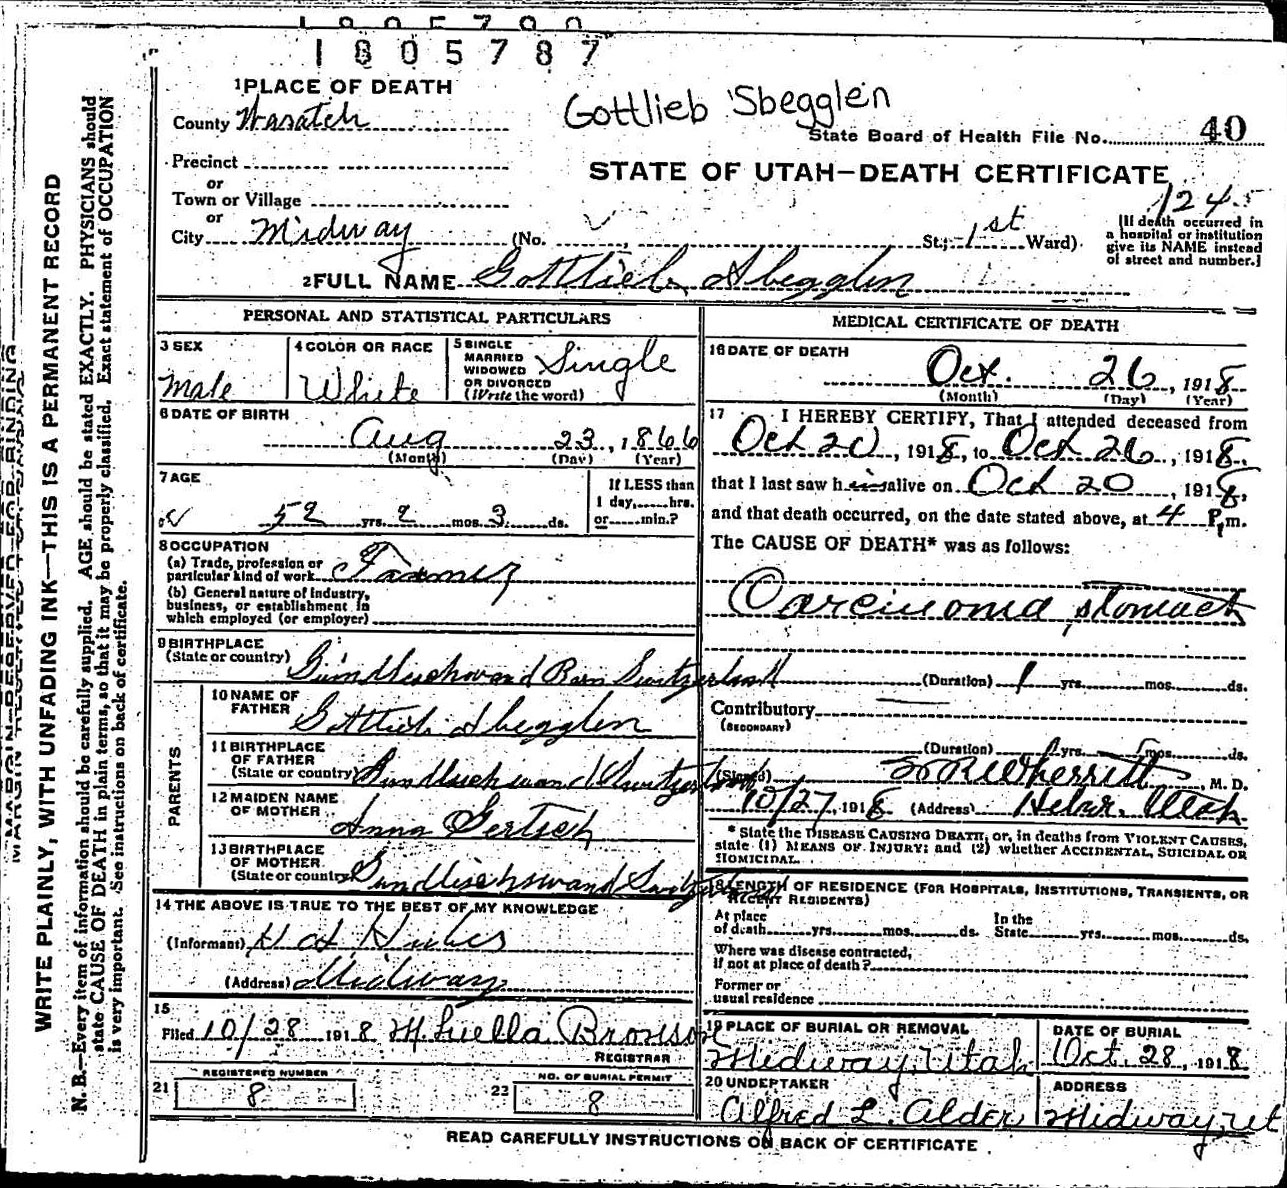 1805787
1 PLACE OF DEATH
County Wasatch
Gottlieb Sbegglen
State Board of Health File No. 40
Precinct
or
Town or Village
or
City Midway
STATE OF UTAH—DEATH CERTIFICATE
124
(No. St.; 1st Ward)
[If death occurred in
a hospital or institution
give its NAME instead
of street and number.]
2 FULL NAME Gottlieb Abegglen
PERSONAL AND STATISTICAL PARTICULARS
3 SEX
Male
4 COLOR OR RACE
White
5 SINGLE
MARRIED
WIDOWED
OR DIVORCED
(Write the word)
Single
6 DATE OF BIRTH
Aug 23, 1866
(Month) (Day) (Year)
7 AGE
52 yrs. 2 mos. 3 ds.
If LESS than
1 day, hrs.
or min.?
8 OCCUPATION
(a) Trade, profession or
particular kind of work Farmer
(b) General nature of Industry,
business, or establishment in
which employed (or employer)
9 BIRTHPLACE
(State or country) Switzerland
PARENTS
10 NAME OF
FATHER Gottlieb Abegglen
11 BIRTHPLACE
OF FATHER
(State or country) Switzerland
12 MAIDEN NAME
OF MOTHER Anna Gertsch
13 BIRTHPLACE
OF MOTHER
(State or country) Switzerland
14 THE ABOVE IS TRUE TO THE BEST OF MY KNOWLEDGE
(Informant)
(Address) Midway
15
Filed 10/28 1918 M. Luella Bronson
REGISTRAR
REGISTERED NUMBER
21 8
NO. OF BURIAL PERMIT
22 8
MEDICAL CERTIFICATE OF DEATH
16 DATE OF DEATH
Oct. 26, 1918
(Month) (Day) (Year)
17 I HEREBY CERTIFY, That I attended deceased from
Oct 20, 1918, to Oct 26, 1918,
that I last saw him alive on Oct 20, 1918,
and that death occurred, on the date stated above, at 4 P.m.
The CAUSE OF DEATH* was as follows:
Carcinoma, stomach
(Duration) 1 yrs. mos. ds.
Contributory
(SECONDARY)
(Duration) yrs. mos. ds.
(Signed) Wherritt, M. D.
10/27, 1918 (Address) Heber, Utah
* State the DISEASE CAUSING DEATH, or, in deaths from VIOLENT CAUSES,
state (1) MEANS OF INJURY; and (2) whether ACCIDENTAL, SUICIDAL OR
HOMICIDAL.
18 LENGTH OF RESIDENCE (FOR HOSPITALS, INSTITUTIONS, TRANSIENTS, OR
RECENT RESIDENTS)
At place
of death yrs. mos. ds.
In the
State yrs. mos. ds.
Where was disease contracted,
If not at place of death?
Former or
usual residence
19 PLACE OF BURIAL OR REMOVAL
Midway, Utah
DATE OF BURIAL
Oct. 28, 1918
20 UNDERTAKER
Alfred L. Alder
ADDRESS
Midway, Ut
READ CAREFULLY INSTRUCTIONS ON BACK OF CERTIFICATE
MARGIN RESERVED FOR BINDING
WRITE PLAINLY, WITH UNFADING INK—THIS IS A PERMANENT RECORD
N. B.—Every item of information should be carefully supplied. AGE should be stated EXACTLY. PHYSICIANS should
state CAUSE OF DEATH in plain terms, so that it may be properly classified. Exact statement of OCCUPATION
is very important. See instructions on back of certificate.